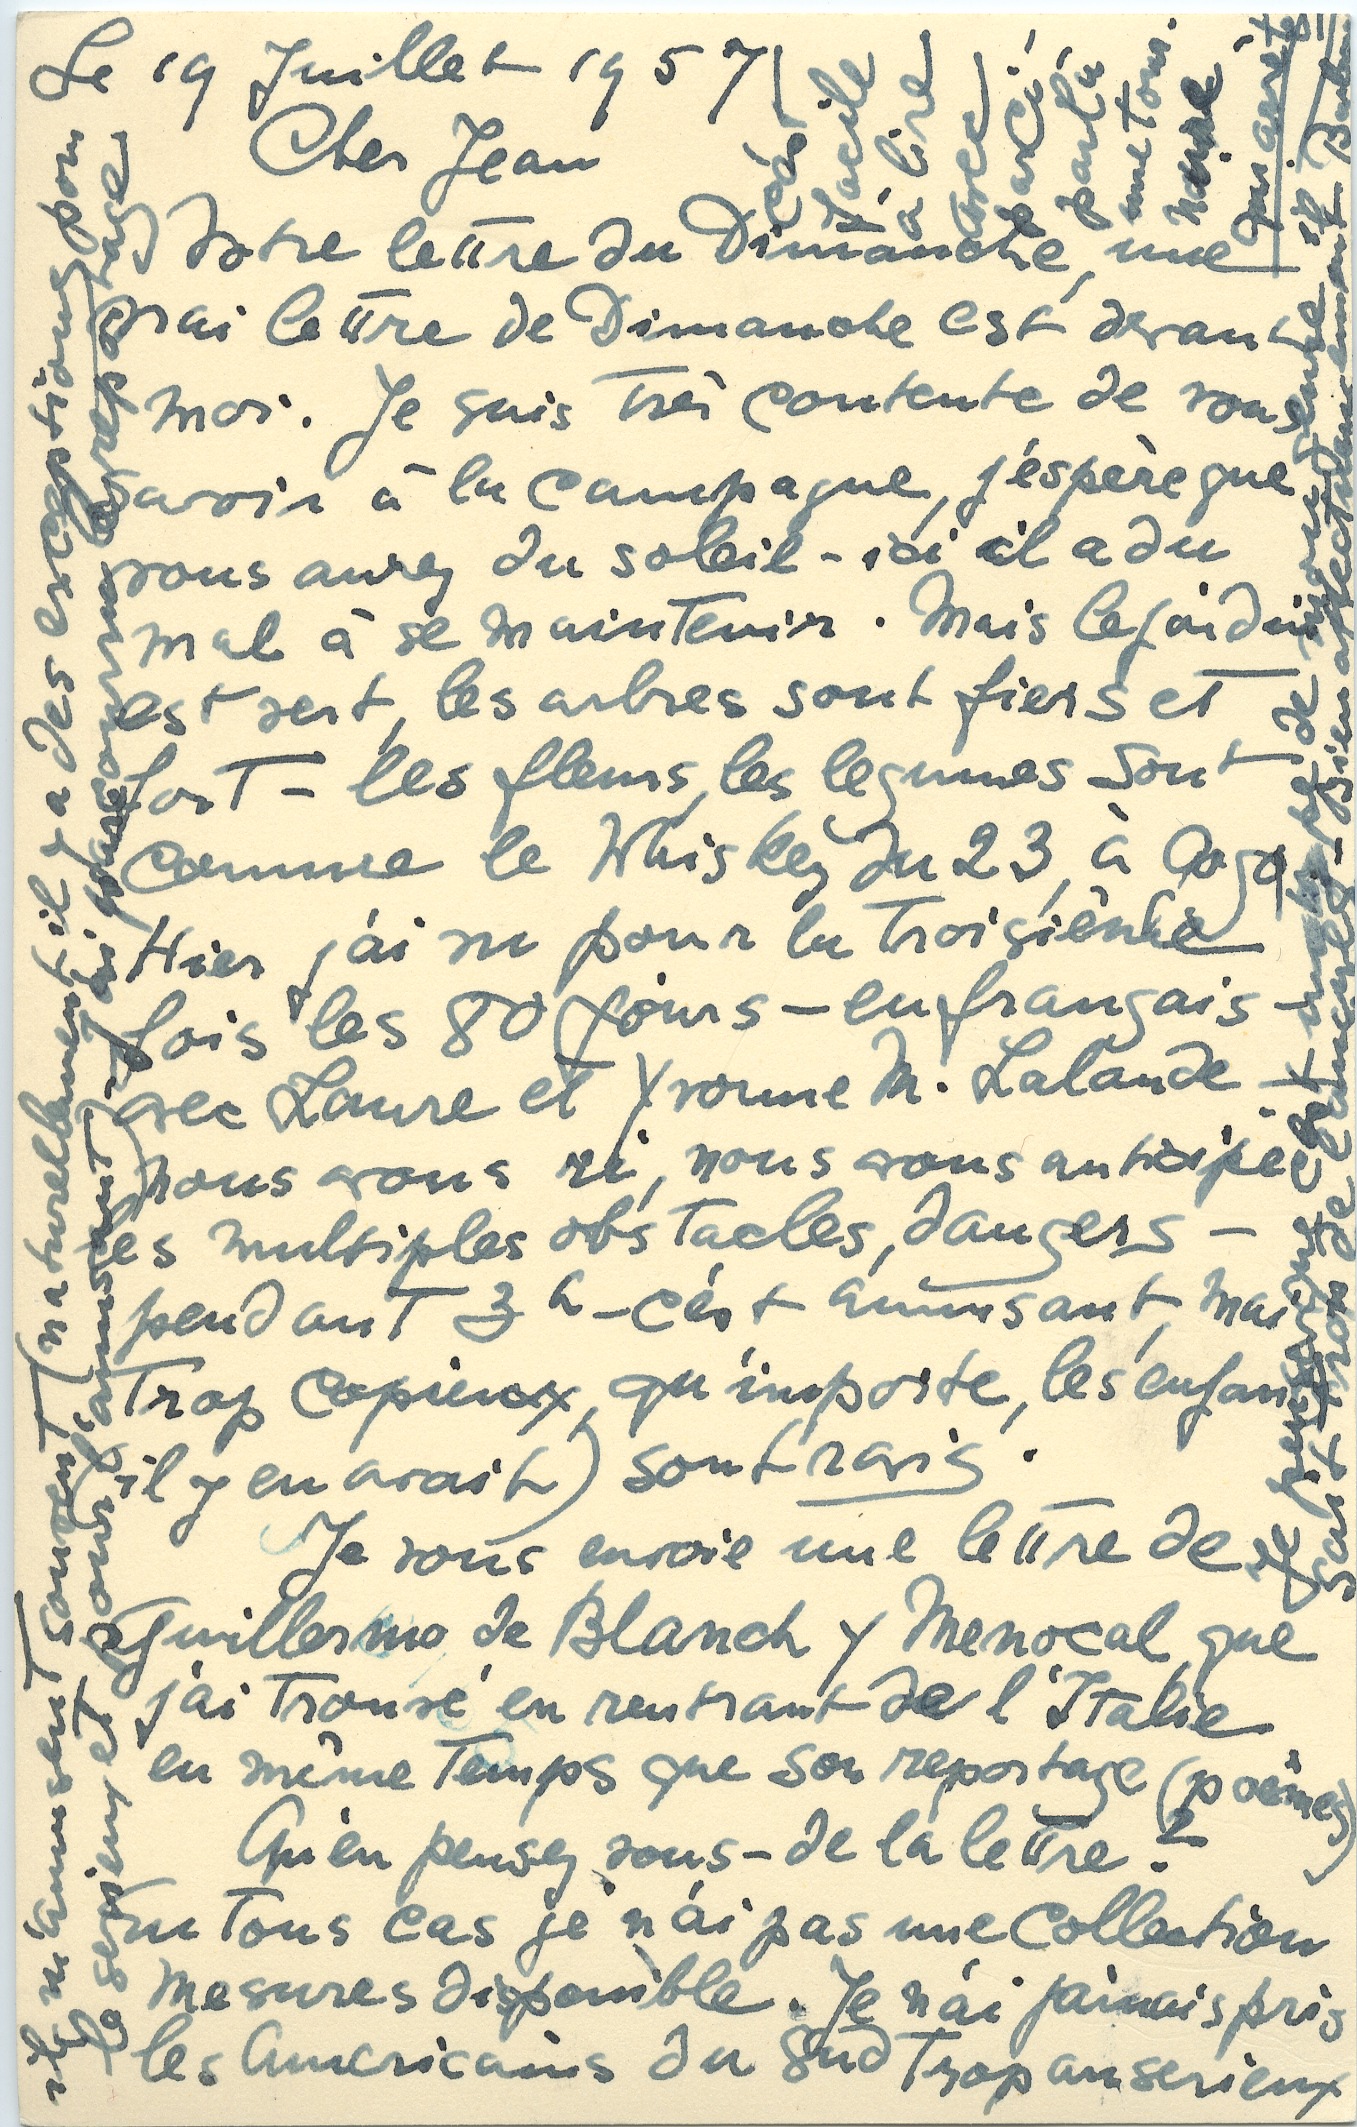 Le 19 Juillet 1957
Cher Jean
Votre lettre du Dimanche, une
vrai lettre de Dimanche est devant
moi. Je suis très contente de vous
savoir à la campagne, j'éspère que
vous aurez du soleil - ici il a du
mal à se maintenir. Mais le jardin
est vert, les arbres sont fiers et
fort - les fleurs, les legumes sont
comme le Whiskey du 23, à gogo
Hier j'ai vu pour la troisième
fois les 80 jours - en français -
avec Laure et Yvonne M. Lalande -
nous avons ri, nous avons anticipé
les multiples obstacles, dangers -
pendant 3 h - c'ést amusant, mais
trop copieux, qu'importe, les enfants
il y en avait) sont ravis.
Je vous envoie une lettre de
Guillermo de Blanck y Menocal que
j'ai trouvé en rentrant de l'Italie
en même temps que son reportage (poèmes)
Qu'en pensez vous - de la lettre ?
En tous cas je n'ai pas une Collection
mesures disponible. Je n'ai jamais pris
les Americains du Sud trop au serieux
ils m'amusent souvent (naturellement il y a des exceptions pour
le serieux et pour l'amusant) - J'ai parcouru le reportage
pas
facile
à lire)
avec
parci
parla
une tour